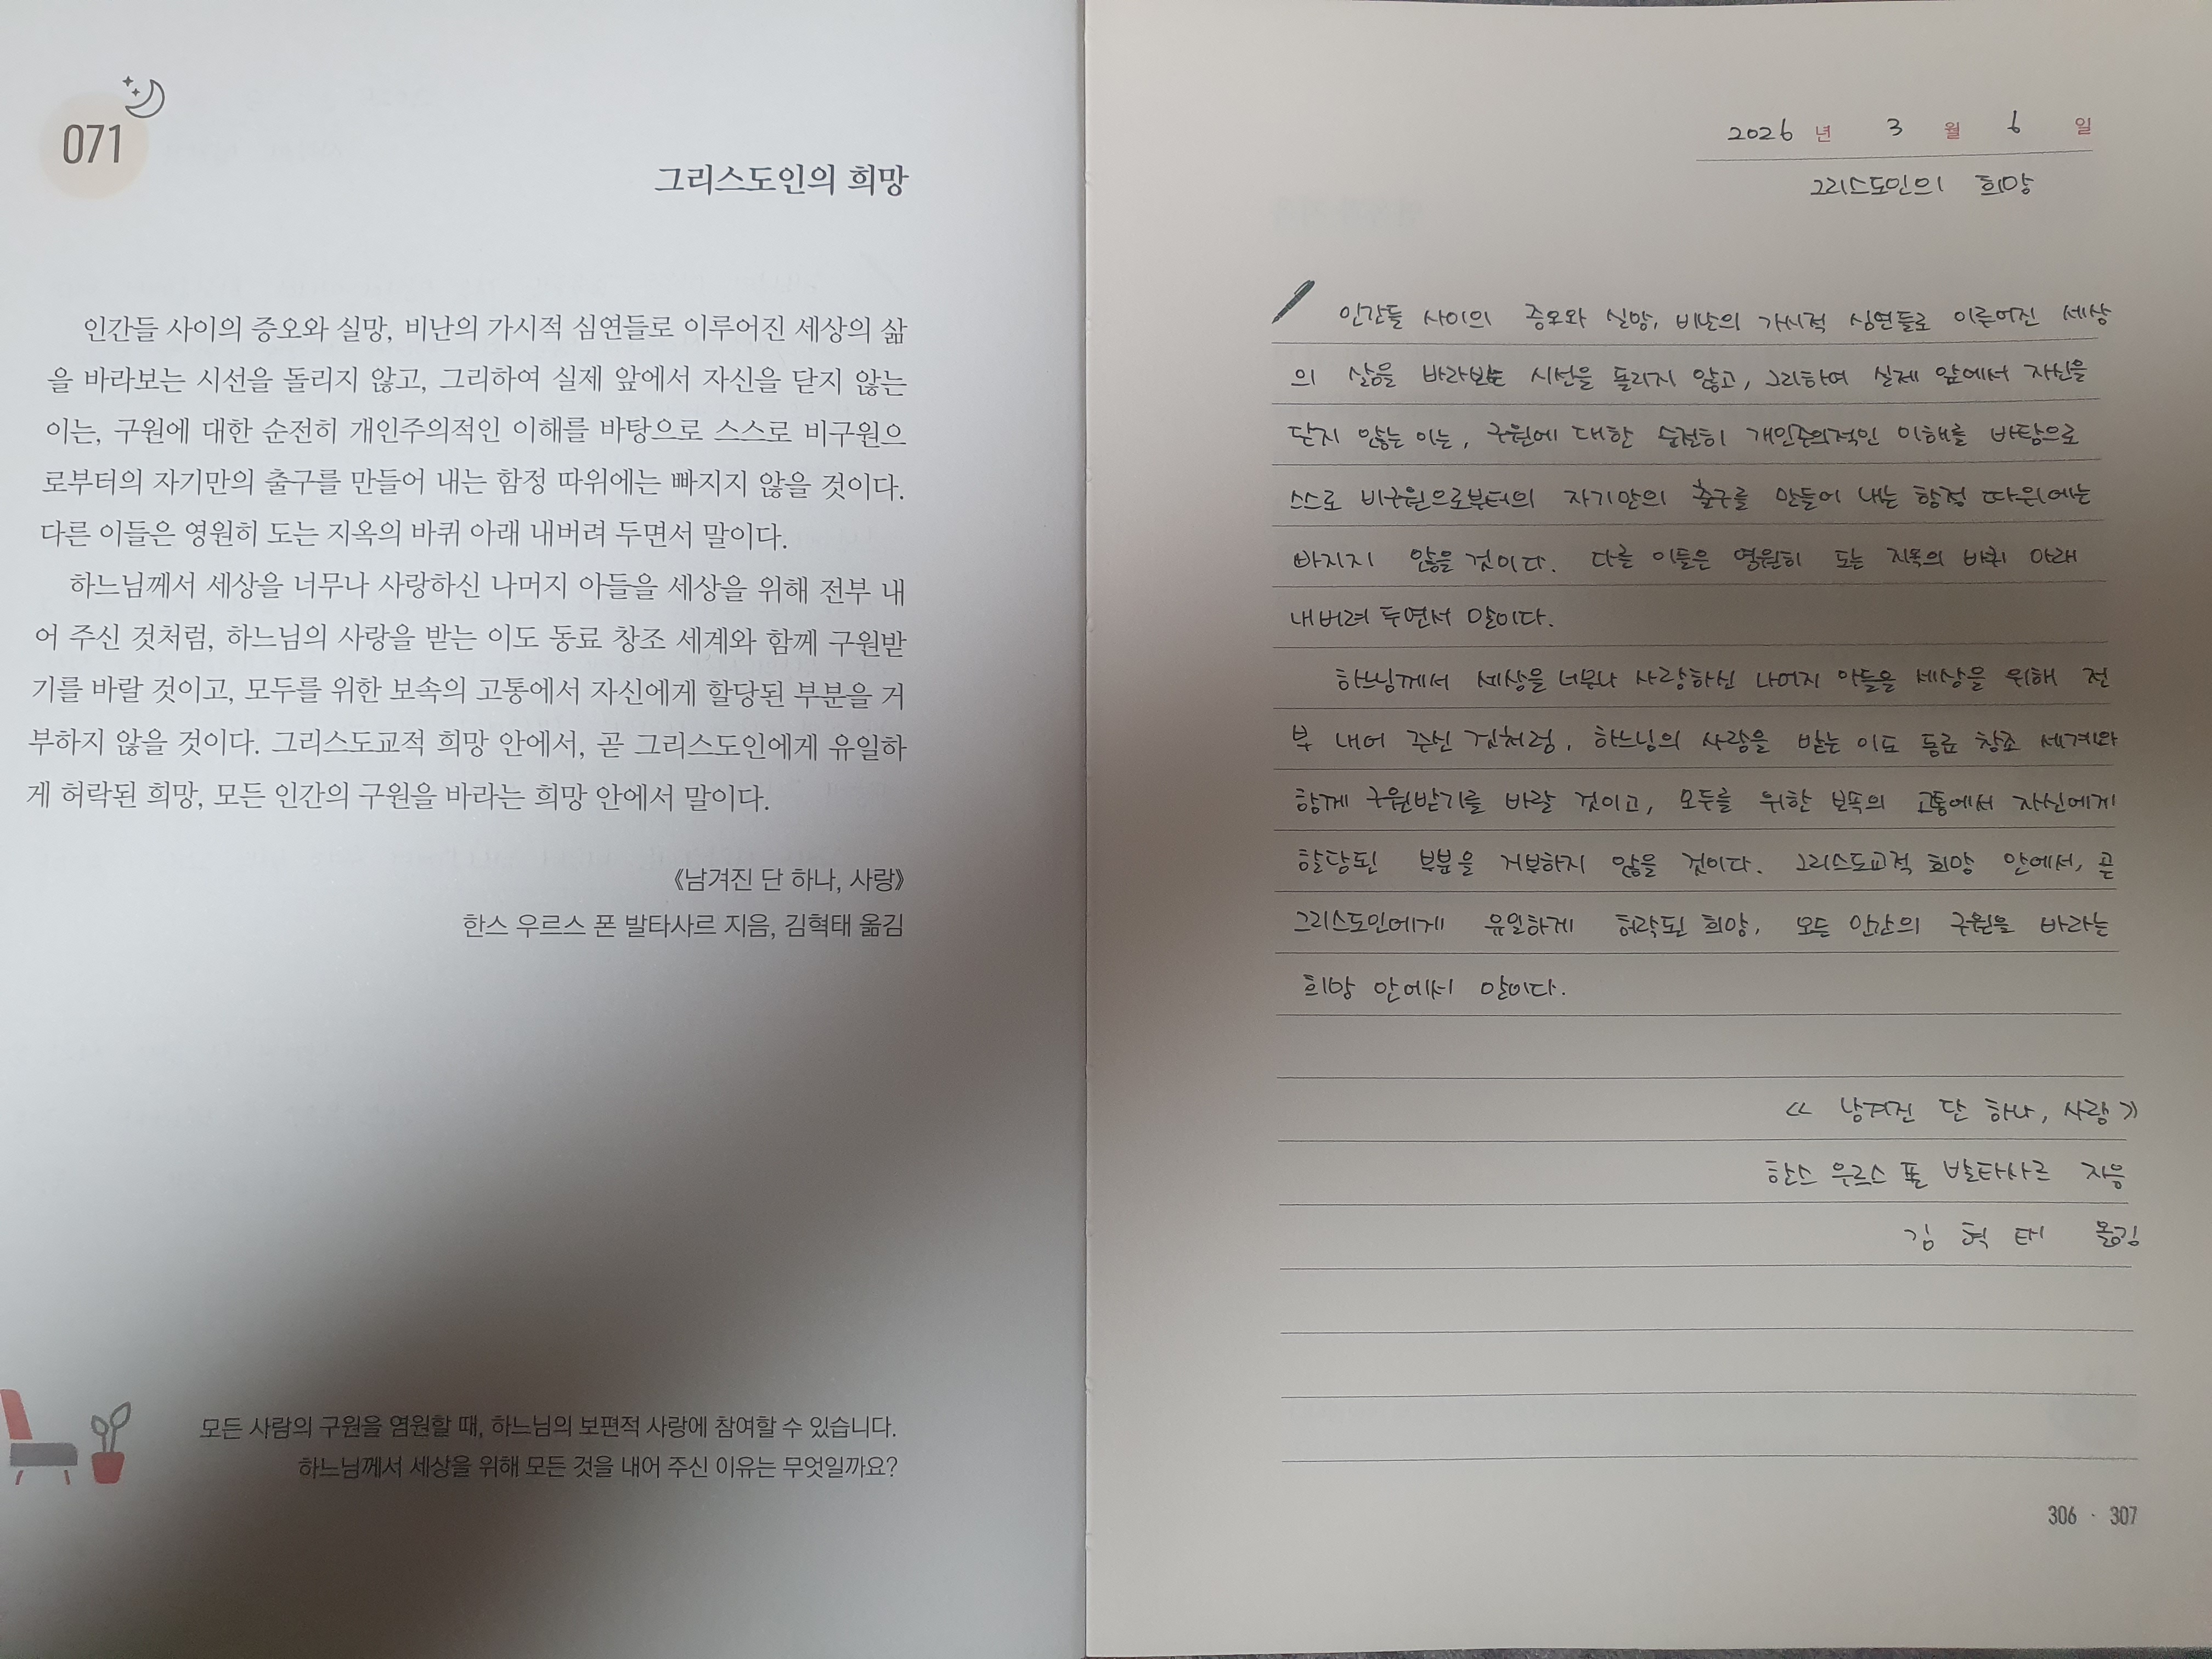 071
그리스도인의 희망
인간들 사이의 증오와 실망, 비난의 가시적 심연들로 이루어진 세상의 삶
을 바라보는 시선을 돌리지 않고, 그리하여 실제 앞에서 자신을 닫지 않는
이는, 구원에 대한 순전히 개인주의적인 이해를 바탕으로 스스로 비구원으
로부터의 자기만의 출구를 만들어 내는 함정 따위에는 빠지지 않을 것이다.
다른 이들은 영원히 도는 지옥의 바퀴 아래 내버려 두면서 말이다.
하느님께서 세상을 너무나 사랑하신 나머지 아들을 세상을 위해 전부 내
어 주신 것처럼, 하느님의 사랑을 받는 이도 동료 창조 세계와 함께 구원받
기를 바랄 것이고, 모두를 위한 보속의 고통에서 자신에게 할당된 부분을 거
부하지 않을 것이다. 그리스도교적 희망 안에서, 곧 그리스도인에게 유일하
게 허락된 희망, 모든 인간의 구원을 바라는 희망 안에서 말이다.
《남겨진 단 하나, 사랑》
한스 우르스 폰 발타사르 지음, 김혁태 옮김
모든 사람의 구원을 염원할 때, 하느님의 보편적 사랑에 참여할 수 있습니다.
하느님께서 세상을 위해 모든 것을 내어 주신 이유는 무엇일까요?
2026 년 3 월 6 일
그리스도인의 희망
인간들 사이의 증오와 실망, 비난의 가시적 심연들로 이루어진 세상
의 삶을 바라보는 시선을 돌리지 않고, 그리하여 실제 앞에서 자신을
닫지 않는 이는, 구원에 대한 순전히 개인주의적인 이해를 바탕으로
스스로 비구원으로부터의 자기만의 출구를 만들어 내는 함정 따위에는
바지지 않을 것이다. 다른 이들은 영원히 도는 지옥의 바퀴 아래
내버려 두면서 말이다.
하느님께서 세상을 너무나 사랑하신 나머지 아들을 세상을 위해 전
부 내어 주신 것처럼, 하느님의 사랑을 받는 이도 동료 창조 세계와
함께 구원받기를 바랄 것이고, 모두를 위한 보속의 고통에서 자신에게
할당된 부분을 거부하지 않을 것이다. 그리스도교적 희망 안에서, 곧
그리스도인에게 유일하게 허락된 희망, 모든 인간의 구원을 바라는
희망 안에서 말이다.
《 남겨진 단 하나, 사랑 》
한스 우르스 폰 발타사르 지음
김 혁 태 옮김
306 · 307